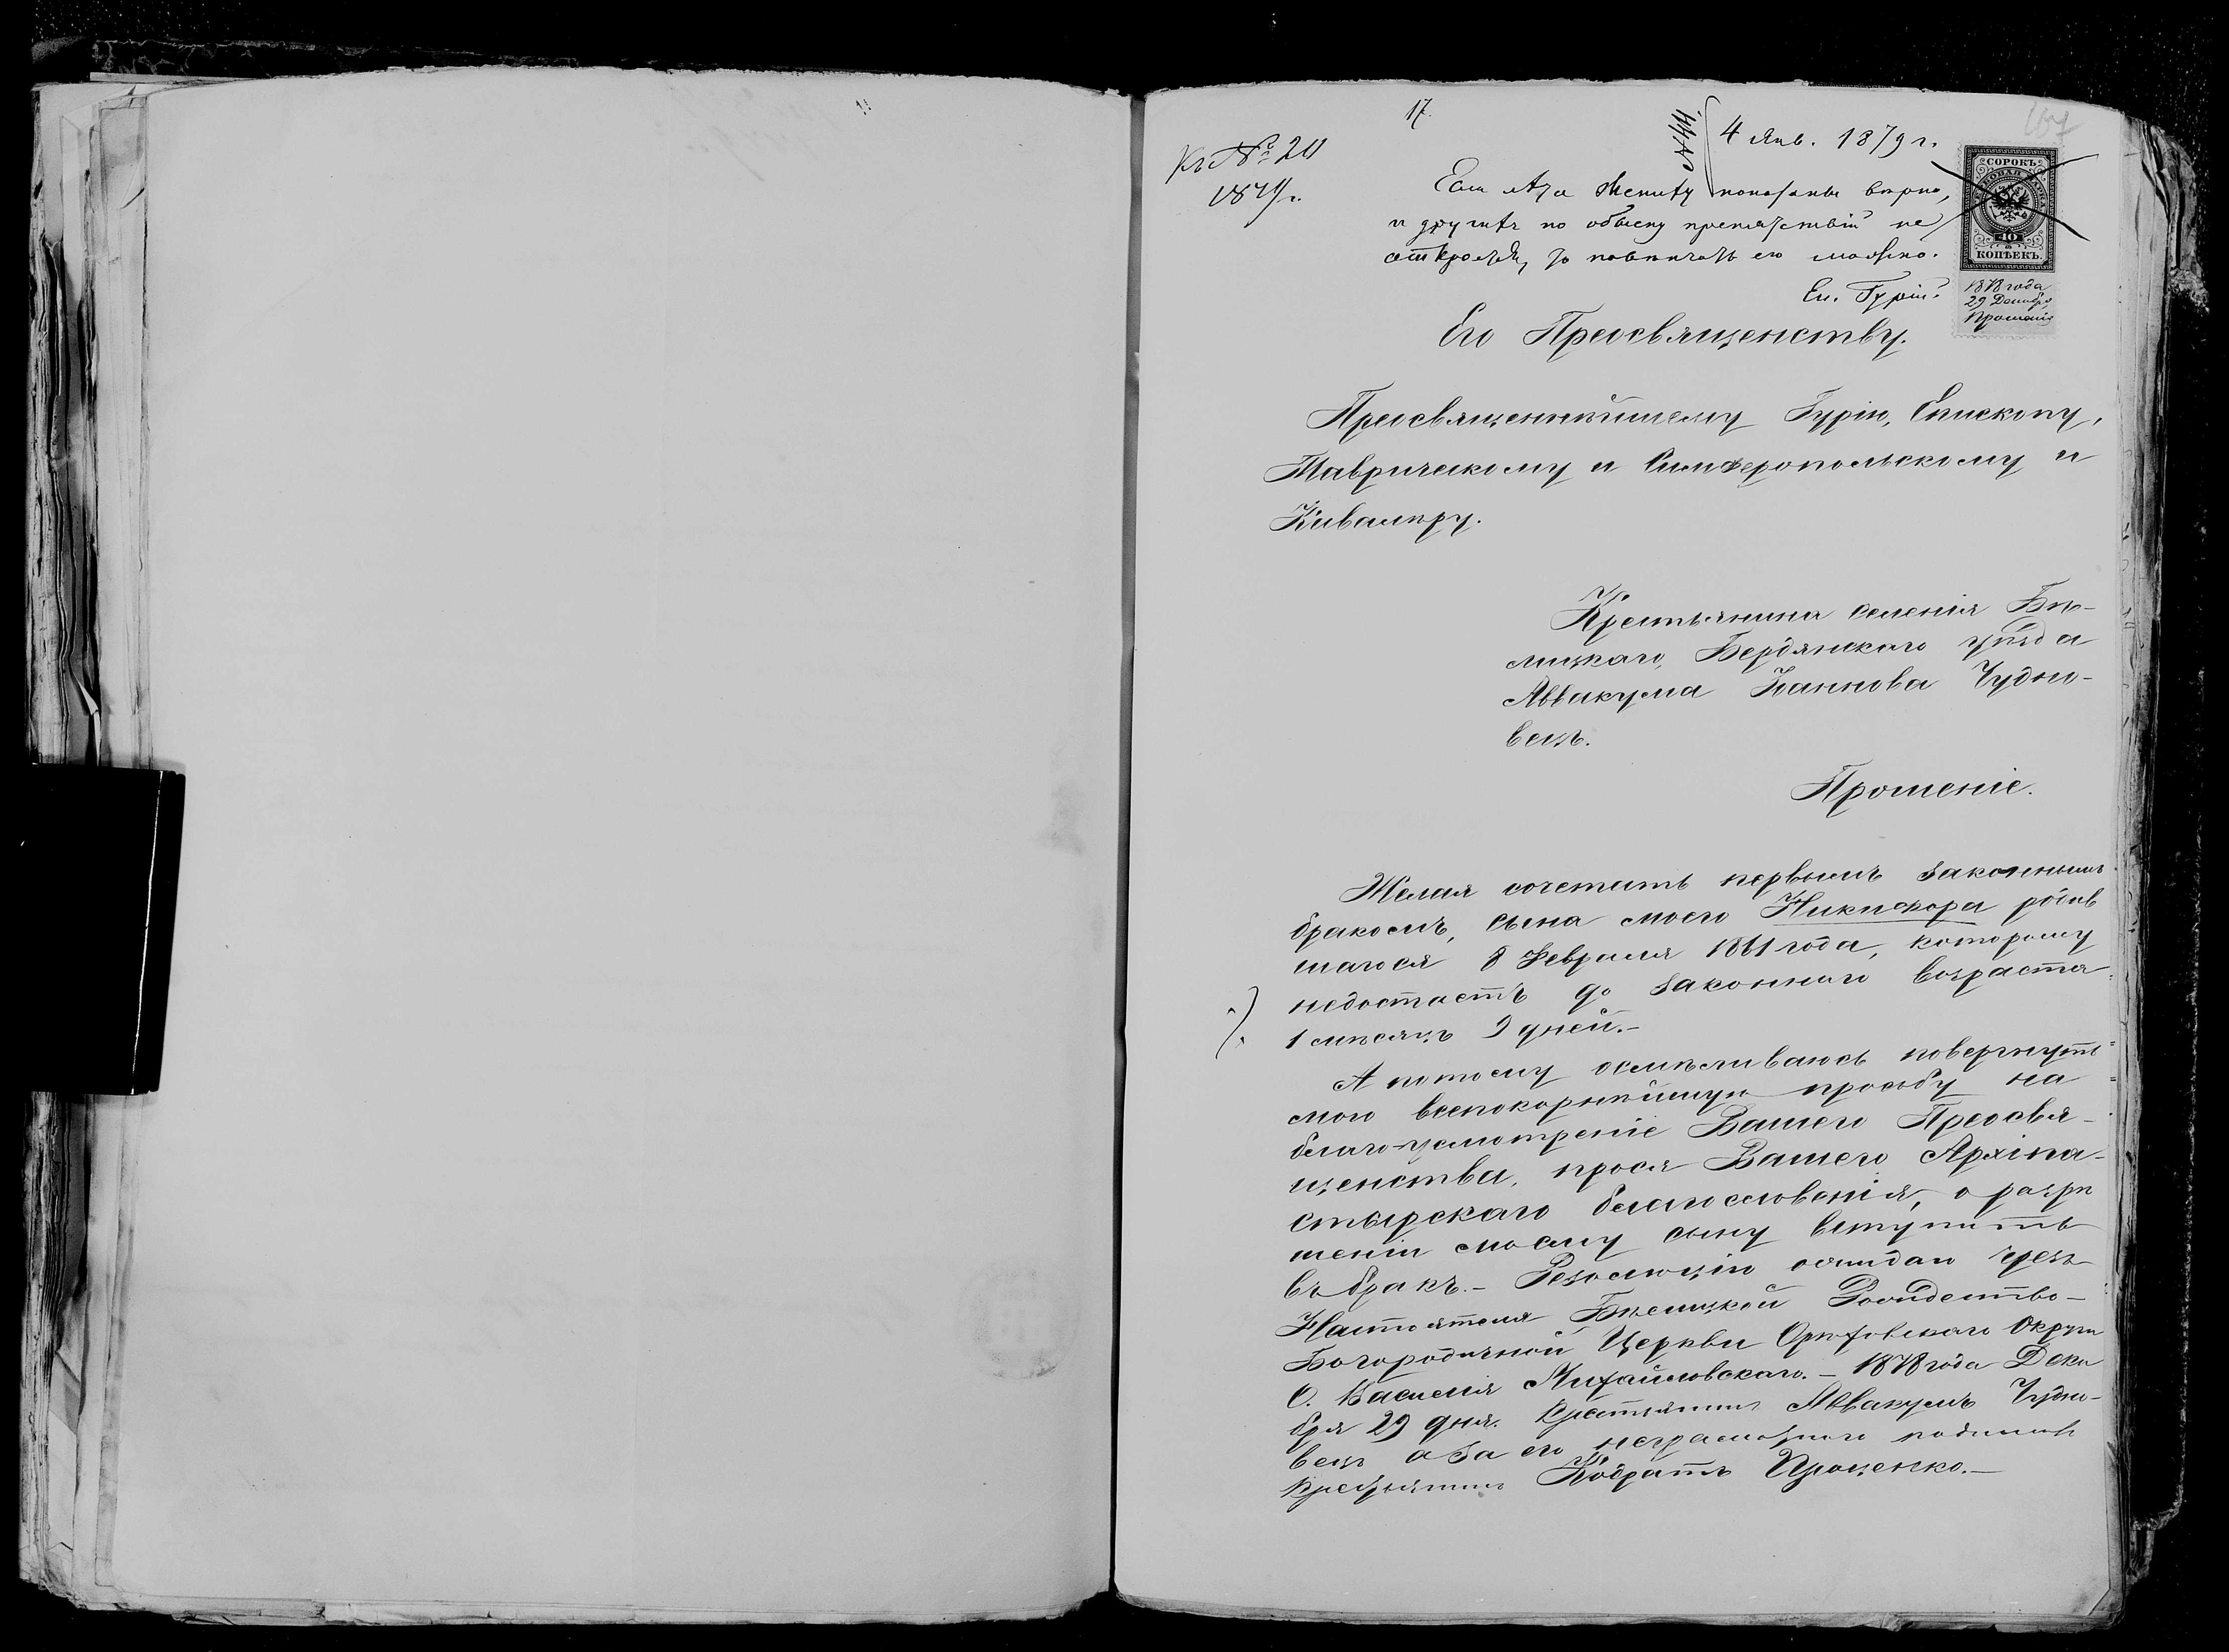 17.
167
Къ № 20
1879 г.
№ 44.
4 Янв. 1879 г.
Если лѣта жениху показаны вѣрно,
и другихъ по обыску препятствій не
откроется, то повѣнчать его можно.
Еп. Гурій.
СОРОКЪ
40
КОПѢЕКЪ.
1878 года
29 Декабря
Прошеніе
Его Преосвященству.
Преосвященнѣйшему Гурію, Епископу,
Таврическому и Симферопольскому и
Кавалеру.
Крестьянина селенія Бѣ-
лицкаго, Бердянскаго уѣзда
Аввакума Іоаннова Чудно-
вецъ.
Прошеніе.
Желая сочетать первымъ законнымъ
бракомъ, сына моего Никифора родив
шагося 8 Февраля 1861 года, которому
недостаетъ до законнаго возраста
1 мѣсяцъ 9 дней.-
А потому осмѣливаюсь повергнуть
мою всепокорнѣйшую просьбу на
благо-усмотреніе Вашего Преосвя-
щенства, прося Вашего Архипа-
стырскаго благословенія, о разрѣ
шеніи моему сыну вступить
въ бракъ.- Резолюцію ожидаю чрезъ
Настоятеля Бѣлицкой Рождество-
Богородичной Церкви Орѣховскаго Округа
О. Василія Михайловскаго.- 1878 года Дека
бря 29 дня. Крестьянинъ Аввакумъ Чудно-
вецъ а за его неграмотнаго подписалъ
Крестьянинъ Кодратъ Проценко.-